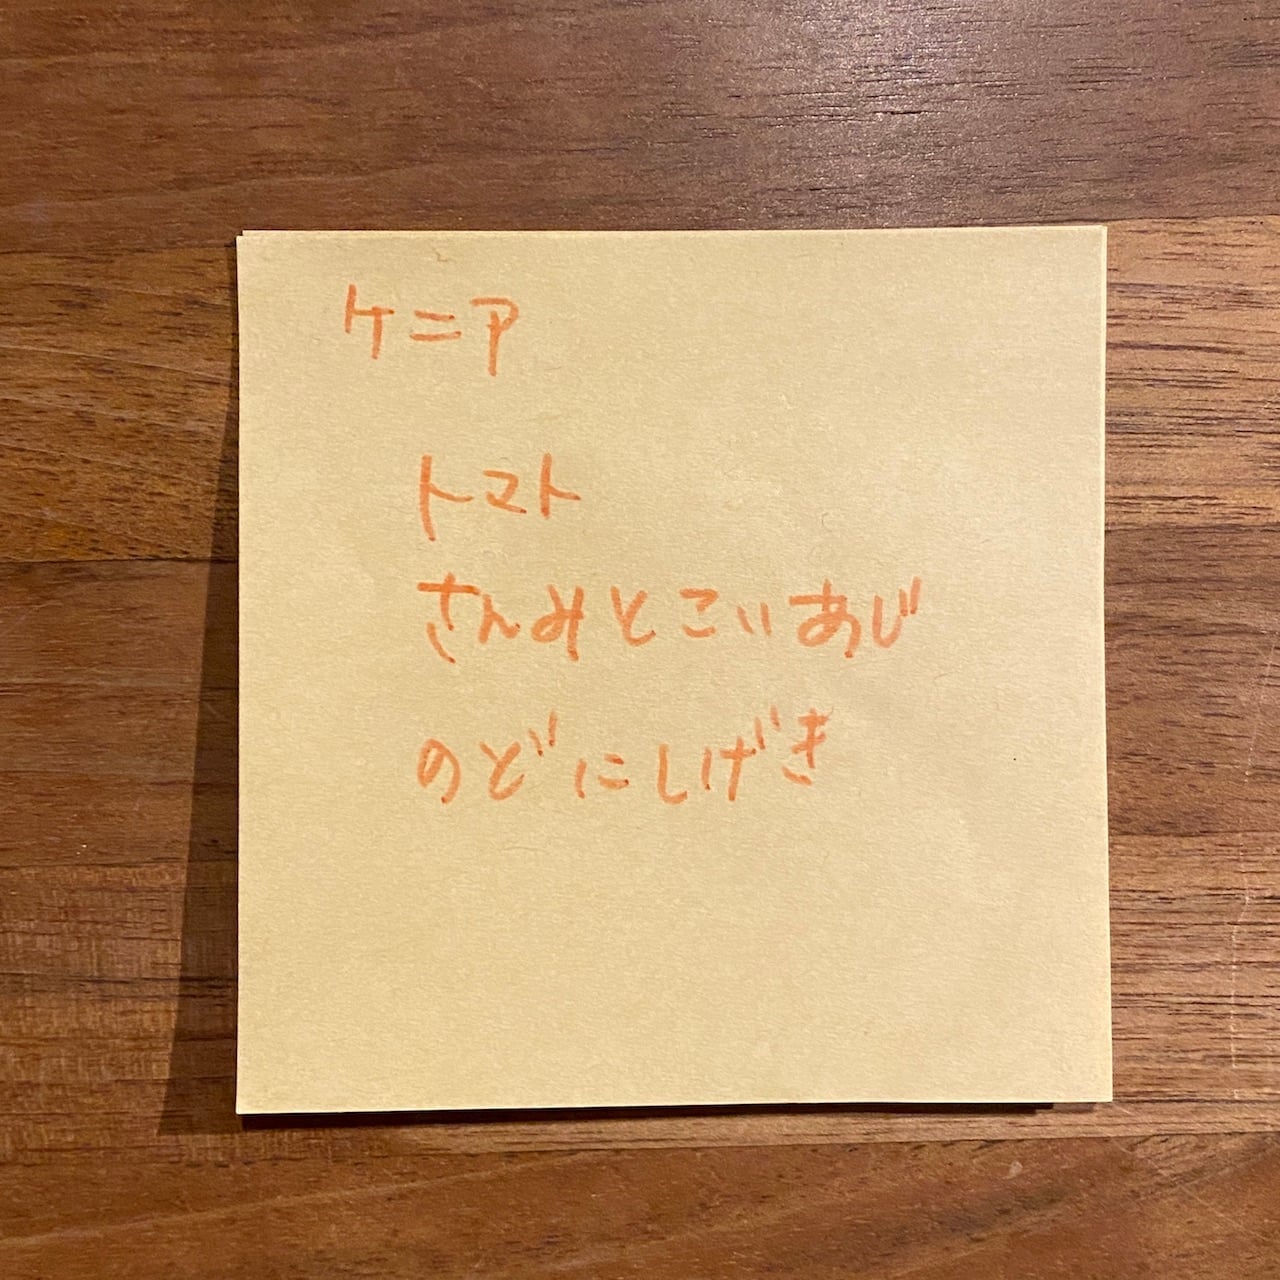 ケニア
トマト
さんみとこいあじ
のどにしげき